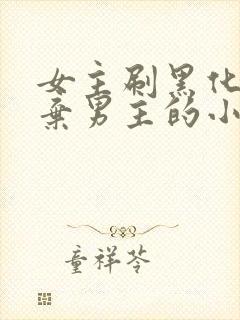 女主刷黑化
弃男主的小
童祥苓